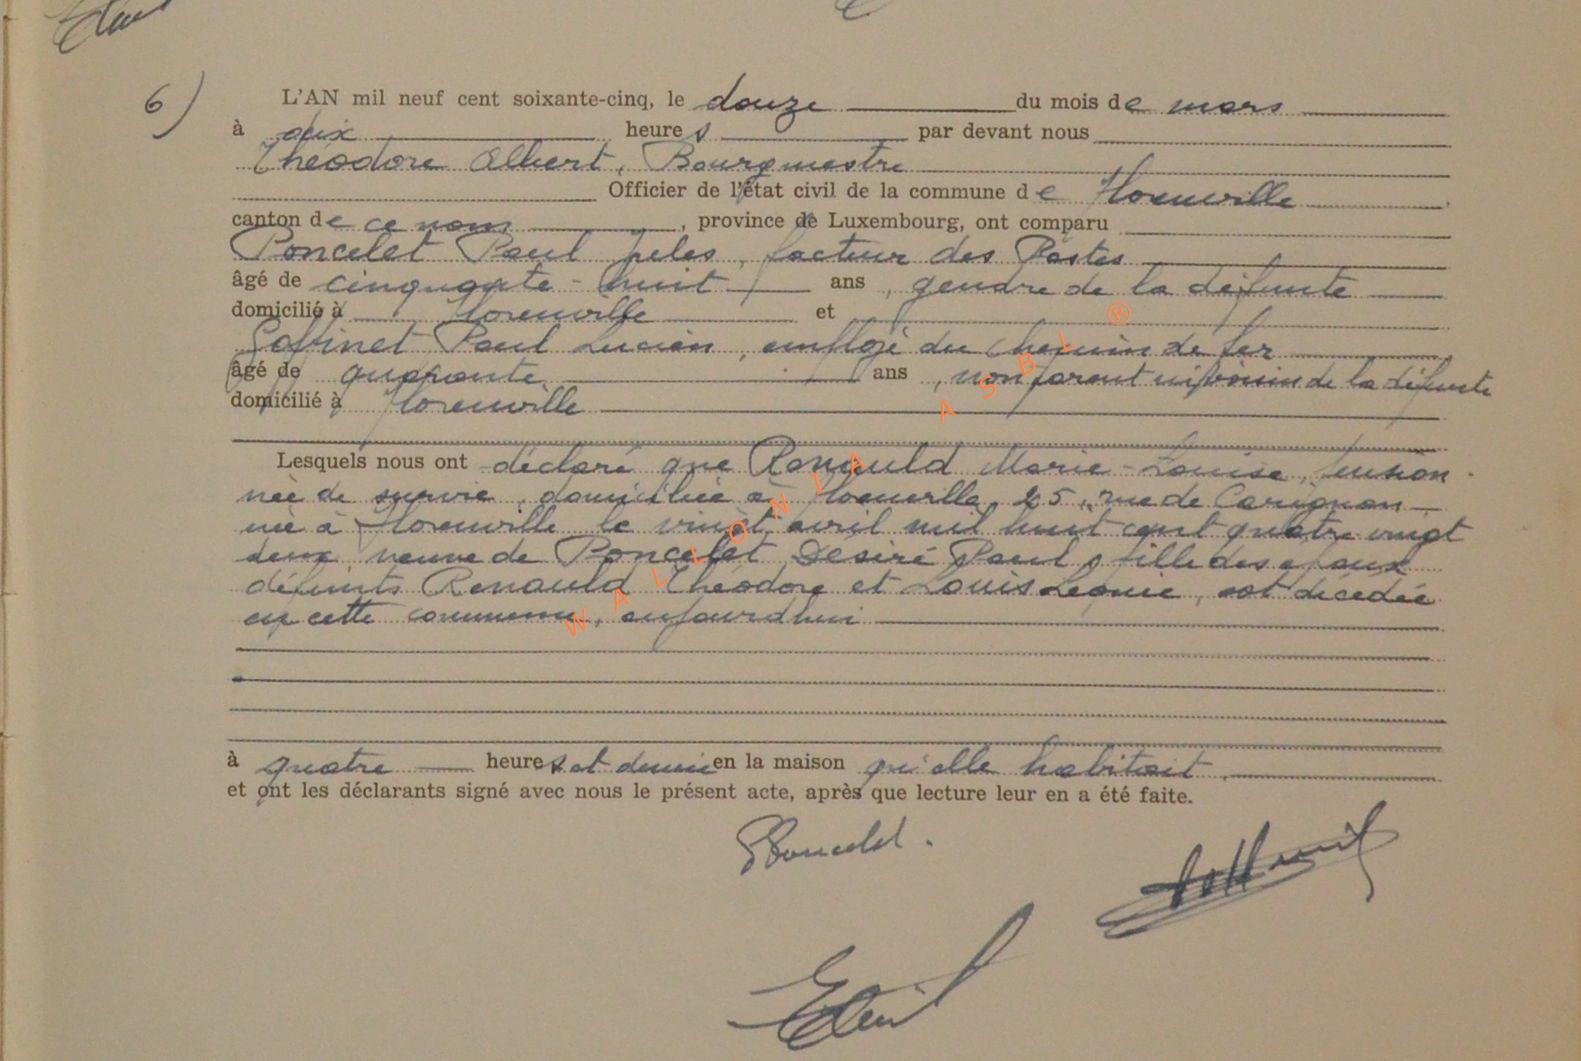 6)
L'AN mil neuf cent soixante-cinq, le douze du mois de mars
à dix heures par devant nous
Théodore Albert, Bourgmestre
Officier de l'état civil de la commune de Florenville
canton de ce nom, province de Luxembourg, ont comparu
Poncelet Paul Jules, facteur des Postes
âgé de cinquante-huit ans, gendre de la défunte
domicilié à Florenville et
Goffinet Paul Lucien, employé du chemin de fer
âgé de quarante ans, non parent ni voisin de la défunte
domicilié à Florenville
Lesquels nous ont déclaré que Renauld Marie-Louise, pension-
née de survie, domiciliée à Florenville, 25, rue de Carignan
née à Florenville le vingt avril mil huit cent quatre vingt
deux, veuve de Poncelet Désiré Paul, fille des époux
défunts Renauld Théodore et Louis Léonie, est décédée
en cette commune, aujourdhui
à quatre heures et demie en la maison qu'elle habitait
et ont les déclarants signé avec nous le présent acte, après que lecture leur en a été faite.
PPoncelet.
WALLONIA ASBL ®